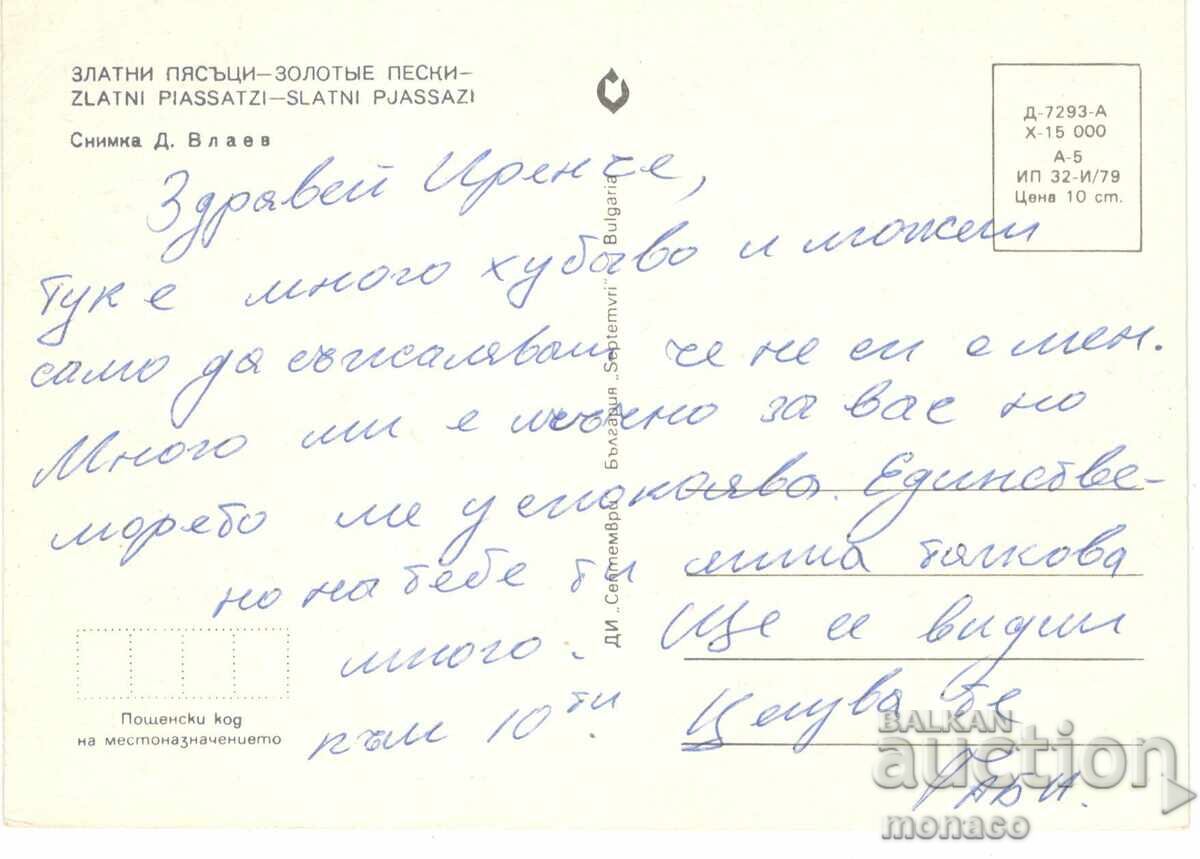 ЗЛАТНИ ПЯСЪЦИ—ЗОЛОТЫЕ ПЕСКИ—
ZLATNI PIASSATZI—SLATNI PJASSAZI
Снимка Д. Влаев
Д-7293-А
Х-15 000
А-5
ИП 32-И/79
Цена 10 ст.
Здравей Иренче,
тук е много хубаво и можеш
само да съжаляваш че не си с мен.
Много ми е мъчно за вас но
морето ме успокоява. Единстве-
но на тебе ти пиша толкова
много. Ще се видим
към 10ти. Целува те
Габи.
ДИ „Септември“ България „Septemvri“ Bulgaria
Пощенски код
на местоназначението
BALKAN
auction
monaco